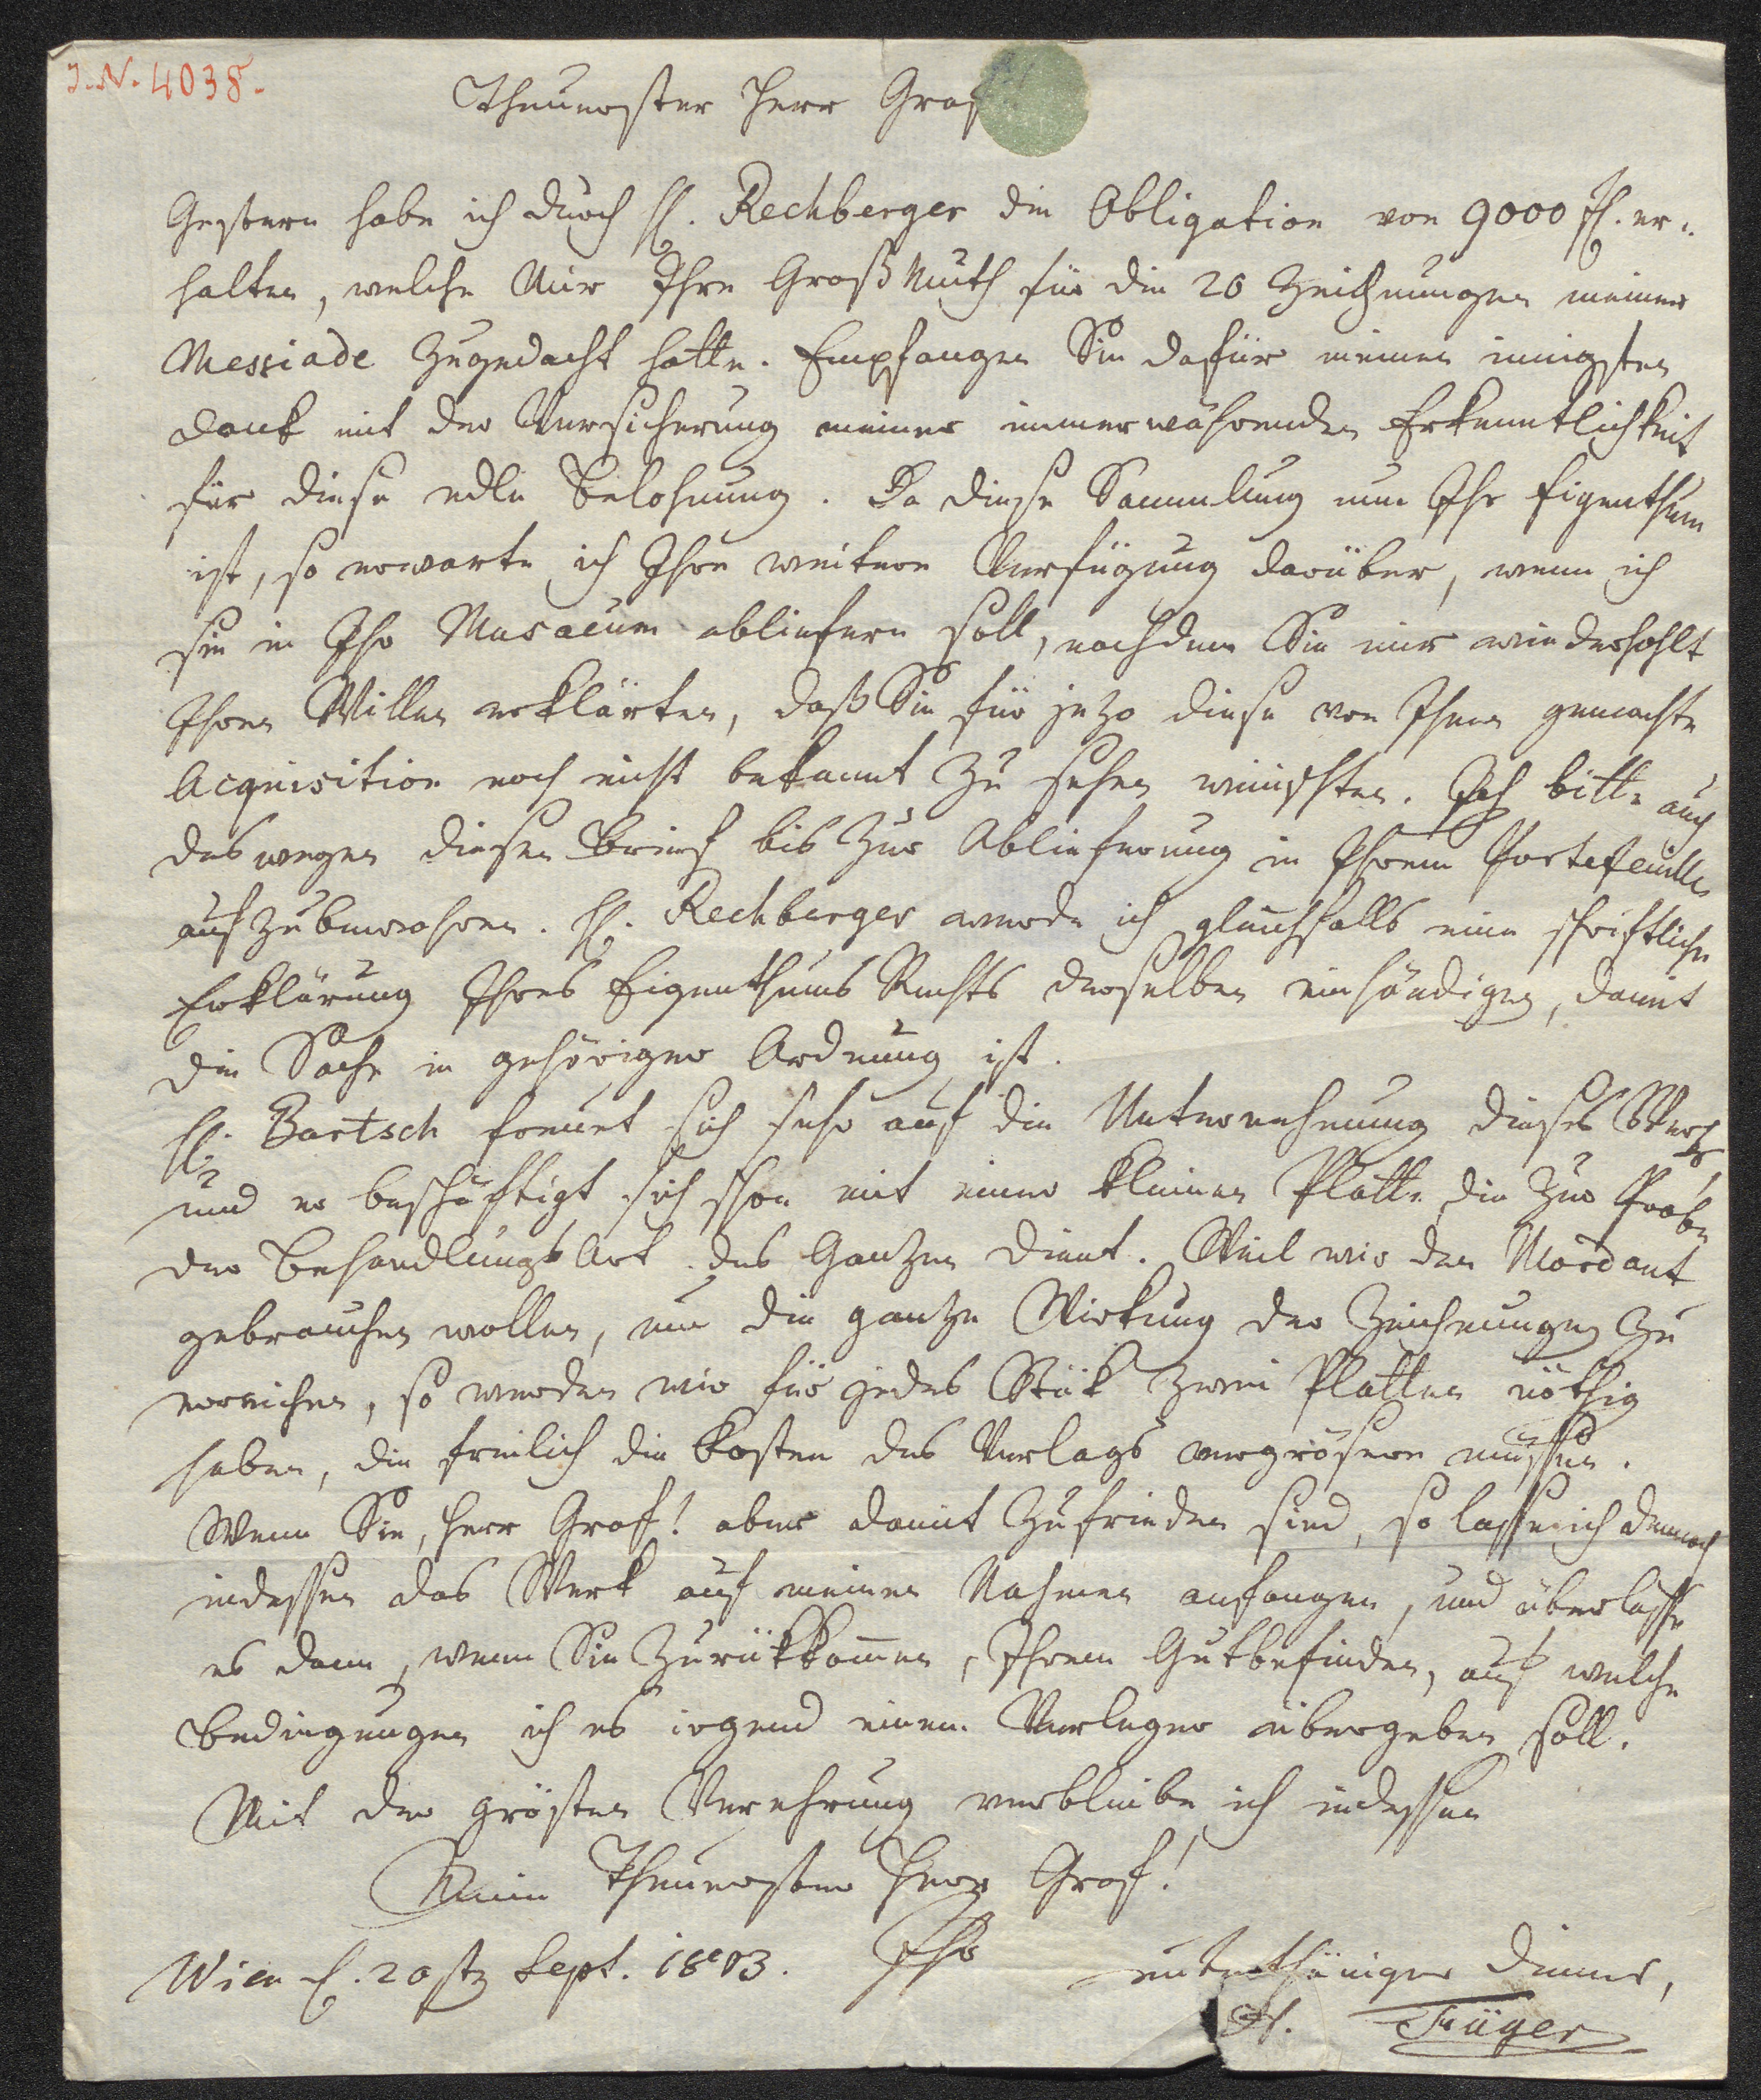 J.N. 4038.
Theuerster Herr Graf
Gestern habe ich durch H. Rechberger die Obligation von 9000 fl. er-
halten, welche Mir Ihre GroßMuth für die 20 Zeichnungen meiner
Messiade zugedacht hatte. Empfangen Sie dafür meinen innigsten
Dank mit der Versicherung meiner immerwährenden Erkenntlichkeit
für diese edle Belohnung. Da diese Sammlung nun Ihr Eigenthum
ist, so erwarte ich Ihre weitere Verfügung darüber, wenn ich
sie in Ihr Musaeum abliefern soll, nachdem Sie mir wiederhohlt
Ihren Willen erklärten, daß Sie für jezo diese von Ihnen gemachte
Acquisition noch nicht bekannt zu sehen wünschten. Ich bitte auch
deswegen diesen Brief bis zur Ablieferung in Ihrem Portefeuille
aufzubewahren. H. Rechberger werde ich gleichfalls eine schriftliche
Erklärung Ihres Eigenthums Rechts derselben einhändigen, damit
die Sache in gehöriger Ordnung ist.
H. Bartsch freuet sich sehr auf die Unternehmung dieses Werks
und er beschäftigt sich schon mit einer kleinen Platte die zur Probe
der BehandlungsArt des Ganzen dient. Weil wir den Mordant
gebrauchen wollen, um die gantze Wirkung der Zeichnungen zu
erreichen, so werden wir für jedes Stük zwei Platten nöthig
haben, die freilich die Kosten des Verlags vergrösern müssen.
Wenn Sie, Herr Graf! aber damit zufrieden sind, so lasse ich dennoch
indessen das Werk auf meinen Nahmen anfangen, und überlasse
es dann, wenn Sie zurükkomen, Ihrem Gutbefinden, auf welche
Bedingungen ich es irgend einem Verleger übergeben soll.
Mit der grösten Verehrung verbleibe ich indessen
Mein Theuerster Herr Graf!
Wien d. 20ste Sept. 1803. Ihr unterthäniger Diener,
H. Füger